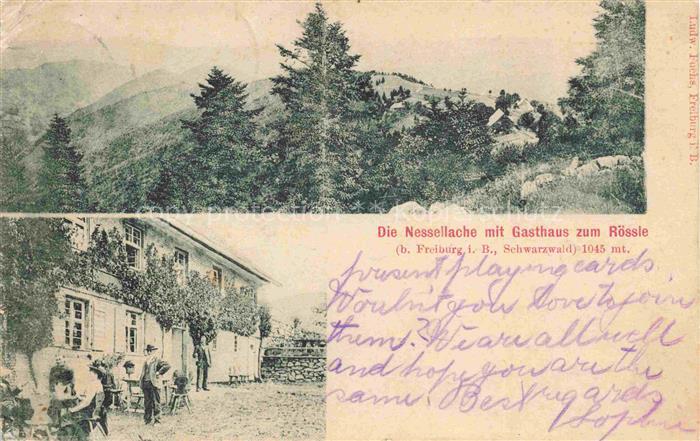 Die Nessellache mit Gasthaus zum Rössle
(b. Freiburg i. B., Schwarzwald) 1045 mt.
present playing cards.
Wouldn't you love to join
them? We are all well
and hope you are the
same. Best regards
Sophie
Ludw. Fuchs, Freiburg i. B.